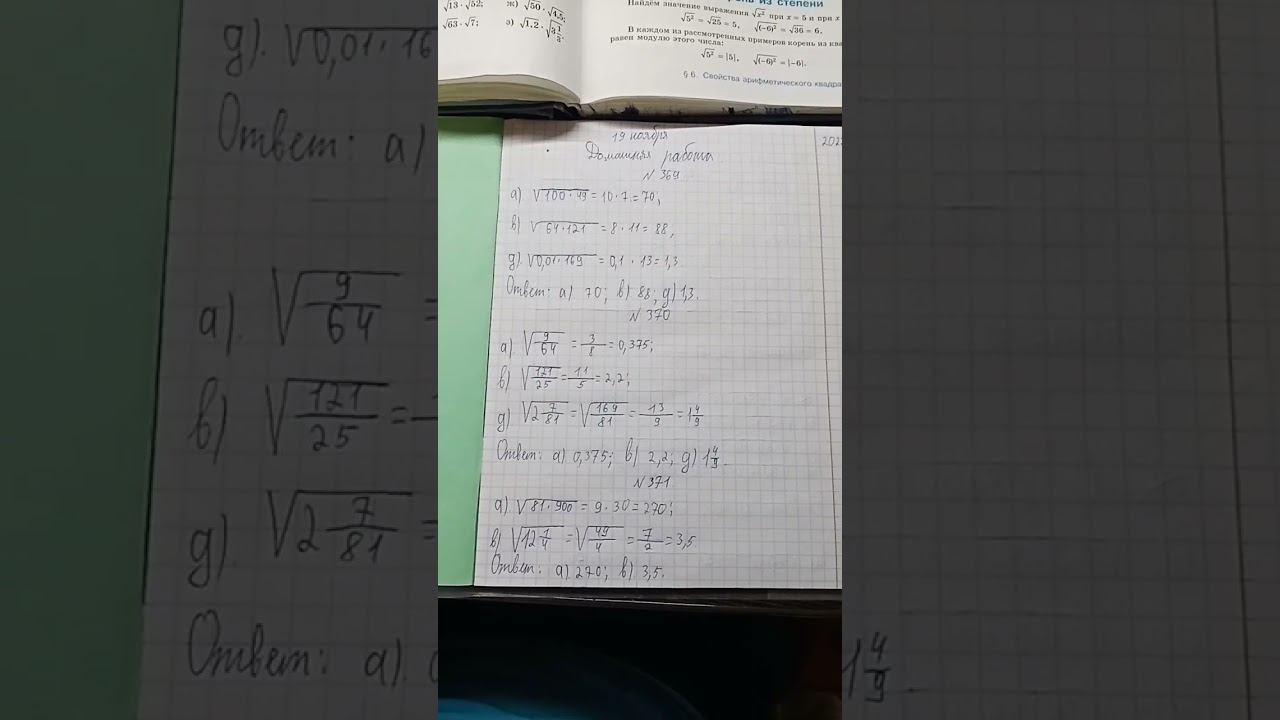 √13 · √52; ж) √50 · √4,5;
√63 · √7; з) √1,2 · √3 1/3.
Найдём значение выражения √x² при x = 5 и при x
√5² = √25 = 5, √(−6)² = √36 = 6.
В каждом из рассмотренных примеров корень из ква
равен модулю этого числа:
√5² = |5|, √(−6)² = |−6|.
§ 6. Свойства арифметического квадра
19 ноября
Домашняя работа
N 369
а) √100 · 49 = 10 · 7 = 70;
в) √64 · 121 = 8 · 11 = 88;
д). √0,01 · 169 = 0,1 · 13 = 1,3.
Ответ: а) 70; в) 88; д) 1,3.
N 370
а) √9/64 = 3/8 = 0,375;
в) √121/25 = 11/5 = 2,2;
д) √2 7/81 = √169/81 = 13/9 = 1 4/9
Ответ: а) 0,375; в) 2,2; д) 1 4/9.
N 371
а) √81 · 900 = 9 · 30 = 270;
в) √12 1/4 = √49/4 = 7/2 = 3,5
Ответ: а) 270; в) 3,5.
д). √0,01 · 16
Ответ: а)
а). √9/64 =
в) √121/25 =
д). √2 7/81 =
Ответ: а).
1 4/9.